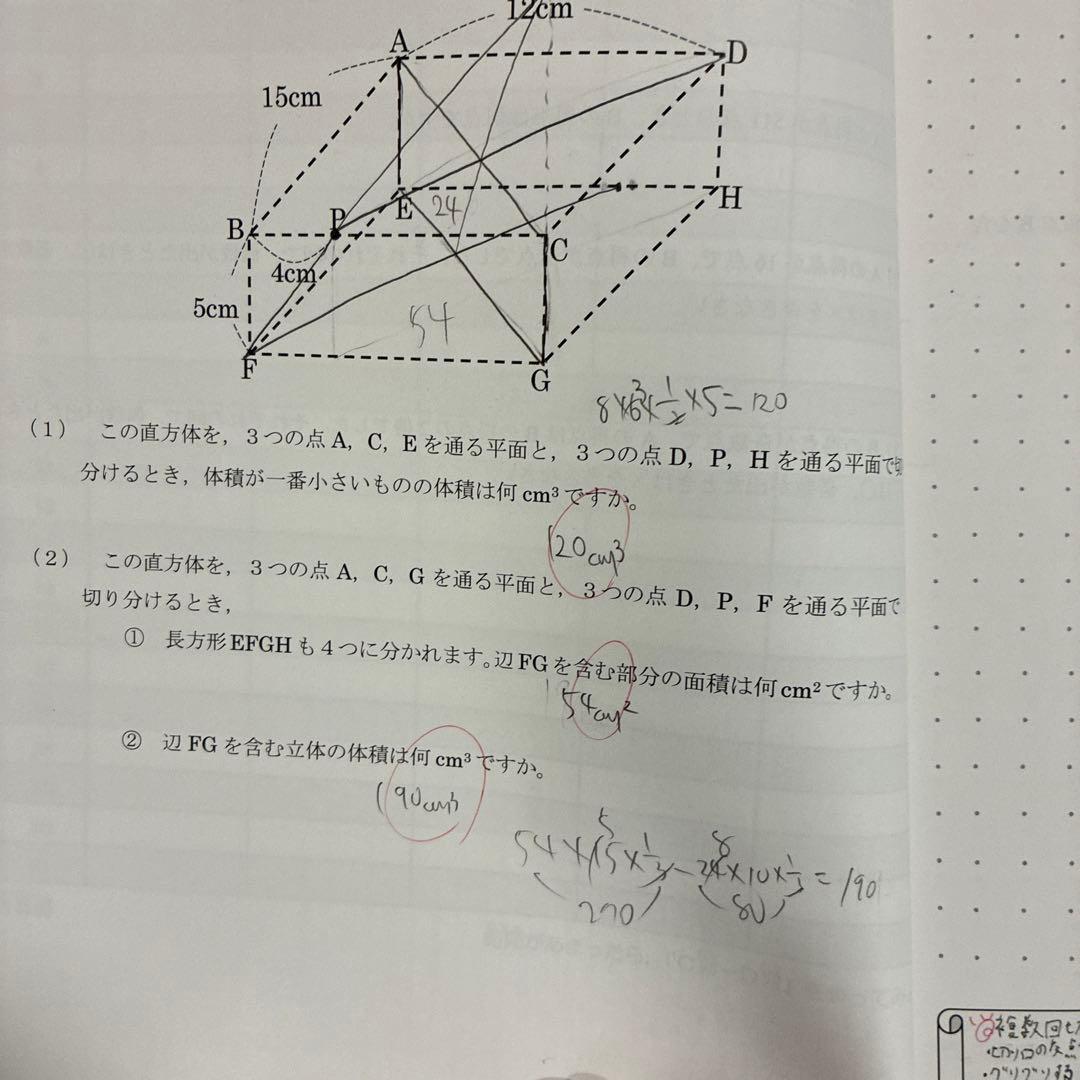 12cm
A
D
15cm
E
24
H
B
P
C
4cm
5cm
54
F
G
8×6×1/2×5=120
(1) この直方体を，3つの点A，C，Eを通る平面と，3つの点D，P，Hを通る平面で切
分けるとき，体積が一番小さいものの体積は何cm³ですか。
120cm³
(2) この直方体を，3つの点A，C，Gを通る平面と，3つの点D，P，Fを通る平面で
切り分けるとき，
① 長方形EFGHも4つに分かれます。辺FGを含む部分の面積は何cm²ですか。
54cm²
② 辺FGを含む立体の体積は何cm³ですか。
190cm³
5
8
54×15×1/3-24×10×1/3=190
270
80
複数回
切り口の交点